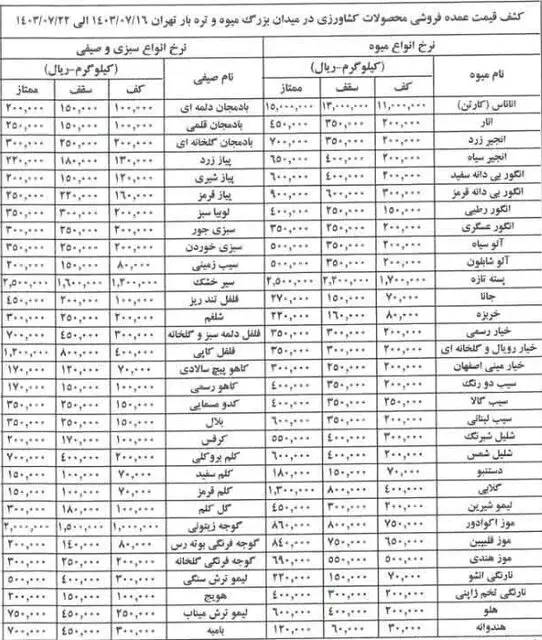 کشف قیمت عمده فروشی محصولات کشاورزی در میدان بزرگ میوه و تره بار تهران ۱۴۰۳/۰۷/۱۶ الی ۱۴۰۳/۰۷/۲۲
نرخ انواع میوه نرخ انواع سبزی و صیفی
نام میوه (کیلوگرم-ریال) نام صیفی (کیلوگرم-ریال)
کف سقف ممتاز کف سقف ممتاز
آناناس (کارتن) ۱۱,۰۰۰,۰۰۰ ۱۳,۰۰۰,۰۰۰ ۱۵,۰۰۰,۰۰۰ بادمجان دلمه ای ۱۰۰,۰۰۰ ۱۵۰,۰۰۰ ۲۰۰,۰۰۰
انار ۲۰۰,۰۰۰ ۳۵۰,۰۰۰ ۴۵۰,۰۰۰ بادمجان قلمی ۱۰۰,۰۰۰ ۱۵۰,۰۰۰ ۲۵۰,۰۰۰
انجیر زرد ۲۰۰,۰۰۰ ۳۵۰,۰۰۰ ۷۰۰,۰۰۰ بادمجان گلخانه ای ۲۰۰,۰۰۰ ۲۵۰,۰۰۰ ۳۰۰,۰۰۰
انجیر سیاه ۲۰۰,۰۰۰ ۴۰۰,۰۰۰ ۶۵۰,۰۰۰ پیاز زرد ۱۳۰,۰۰۰ ۱۸۰,۰۰۰ ۲۲۰,۰۰۰
انگور بی دانه سفید ۲۰۰,۰۰۰ ۴۰۰,۰۰۰ ۶۰۰,۰۰۰ پیاز شیری ۱۲۰,۰۰۰ ۱۵۰,۰۰۰ ۲۰۰,۰۰۰
انگور بی دانه قرمز ۳۰۰,۰۰۰ ۶۰۰,۰۰۰ ۹۰۰,۰۰۰ پیاز قرمز ۱۶۰,۰۰۰ ۲۲۰,۰۰۰ ۲۵۰,۰۰۰
انگور رطبی ۱۵۰,۰۰۰ ۲۵۰,۰۰۰ ۴۰۰,۰۰۰ لوبیا سبز ۲۰۰,۰۰۰ ۳۰۰,۰۰۰ ۳۵۰,۰۰۰
انگور عسگری ۲۰۰,۰۰۰ ۲۵۰,۰۰۰ ۳۵۰,۰۰۰ سبزی جور ۲۰۰,۰۰۰ ۲۵۰,۰۰۰ ۳۵۰,۰۰۰
آلو سیاه ۲۰۰,۰۰۰ ۳۵۰,۰۰۰ ۵۰۰,۰۰۰ سبزی خوردن ۲۰۰,۰۰۰ ۲۵۰,۰۰۰ ۳۵۰,۰۰۰
آلو شابلون ۲۰۰,۰۰۰ ۳۵۰,۰۰۰ ۵۰۰,۰۰۰ سیب زمینی ۸۰,۰۰۰ ۱۵۰,۰۰۰ ۲۰۰,۰۰۰
پسته تازه ۱,۷۰۰,۰۰۰ ۲,۲۰۰,۰۰۰ ۲,۵۰۰,۰۰۰ سیر خشک ۱,۲۰۰,۰۰۰ ۱,۶۰۰,۰۰۰ ۲,۵۰۰,۰۰۰
جانا ۷۰,۰۰۰ ۱۵۰,۰۰۰ ۲۷۰,۰۰۰ فلفل تند ریز ۱۰۰,۰۰۰ ۲۰۰,۰۰۰ ۴۵۰,۰۰۰
خربزه ۸۰,۰۰۰ ۱۶۰,۰۰۰ ۲۲۰,۰۰۰ شلغم ۲۰۰,۰۰۰ ۲۵۰,۰۰۰ ۳۰۰,۰۰۰
خیار رسمی ۲۰۰,۰۰۰ ۳۰۰,۰۰۰ ۳۵۰,۰۰۰ فلفل دلمه سبز و گلخانه ۳۰۰,۰۰۰ ۴۵۰,۰۰۰ ۷۰۰,۰۰۰
خیار رویال و گلخانه ای ۲۰۰,۰۰۰ ۳۰۰,۰۰۰ ۳۵۰,۰۰۰ فلفل کاپی ۴۰۰,۰۰۰ ۸۰۰,۰۰۰ ۱,۲۰۰,۰۰۰
خیار مینی اصفهان ۲۰۰,۰۰۰ ۲۵۰,۰۰۰ ۳۰۰,۰۰۰ کاهو پیچ سالادی ۷۰,۰۰۰ ۱۲۰,۰۰۰ ۱۷۰,۰۰۰
سیب دو رنگ ۲۰۰,۰۰۰ ۳۵۰,۰۰۰ ۴۰۰,۰۰۰ کاهو رسمی ۱۰۰,۰۰۰ ۱۵۰,۰۰۰ ۱۷۰,۰۰۰
سیب گالا ۲۵۰,۰۰۰ ۳۵۰,۰۰۰ ۴۰۰,۰۰۰ کدو مسمایی ۱۵۰,۰۰۰ ۲۵۰,۰۰۰ ۳۵۰,۰۰۰
سیب لبنانی ۲۰۰,۰۰۰ ۳۵۰,۰۰۰ ۶۰۰,۰۰۰ بلال ۱۵۰,۰۰۰ ۲۵۰,۰۰۰ ۳۵۰,۰۰۰
شلیل شبرنگ ۳۰۰,۰۰۰ ۴۰۰,۰۰۰ ۵۵۰,۰۰۰ کرفس ۱۰۰,۰۰۰ ۱۷۰,۰۰۰ ۲۰۰,۰۰۰
شلیل شمس ۲۰۰,۰۰۰ ۴۰۰,۰۰۰ ۶۰۰,۰۰۰ کلم بروکلی ۲۰۰,۰۰۰ ۴۰۰,۰۰۰ ۷۰۰,۰۰۰
دستنبو ۷۰,۰۰۰ ۱۵۰,۰۰۰ ۱۸۰,۰۰۰ کلم سفید ۷۰,۰۰۰ ۱۰۰,۰۰۰ ۱۵۰,۰۰۰
گلابی ۴۰۰,۰۰۰ ۸۰۰,۰۰۰ ۱,۳۰۰,۰۰۰ کلم قرمز ۷۰,۰۰۰ ۱۰۰,۰۰۰ ۱۵۰,۰۰۰
لیمو شیرین ۲۰۰,۰۰۰ ۳۰۰,۰۰۰ ۴۵۰,۰۰۰ گل کلم ۱۰۰,۰۰۰ ۱۸۰,۰۰۰ ۳۰۰,۰۰۰
موز اکوادور ۷۵۰,۰۰۰ ۸۰۰,۰۰۰ ۸۶۰,۰۰۰ گوجه زیتونی ۱,۰۰۰,۰۰۰ ۱,۵۰۰,۰۰۰ ۲,۰۰۰,۰۰۰
موز فلیپین ۶۵۰,۰۰۰ ۷۵۰,۰۰۰ ۸۴۰,۰۰۰ گوجه فرنگی بوته رس ۸۰,۰۰۰ ۱۴۰,۰۰۰ ۲۰۰,۰۰۰
موز هندی ۵۰۰,۰۰۰ ۵۵۰,۰۰۰ ۶۹۰,۰۰۰ گوجه فرنگی گلخانه ۲۰۰,۰۰۰ ۲۵۰,۰۰۰ ۳۰۰,۰۰۰
نارنگی انشو ۷۰,۰۰۰ ۱۵۰,۰۰۰ ۲۲۰,۰۰۰ لیمو ترش سنگی ۳۰۰,۰۰۰ ۴۰۰,۰۰۰ ۵۰۰,۰۰۰
نارنگی تخم ژاپنی ۲۰۰,۰۰۰ ۳۰۰,۰۰۰ ۴۰۰,۰۰۰ هویج ۱۰۰,۰۰۰ ۱۵۰,۰۰۰ ۲۰۰,۰۰۰
هلو ۲۰۰,۰۰۰ ۴۰۰,۰۰۰ ۶۰۰,۰۰۰ لیمو ترش میناب ۲۵۰,۰۰۰ ۴۵۰,۰۰۰ ۷۵۰,۰۰۰
هندوانه ۳۰,۰۰۰ ۶۰,۰۰۰ ۱۲۰,۰۰۰ بامیه ۳۰۰,۰۰۰ ۴۵۰,۰۰۰ ۷۰۰,۰۰۰